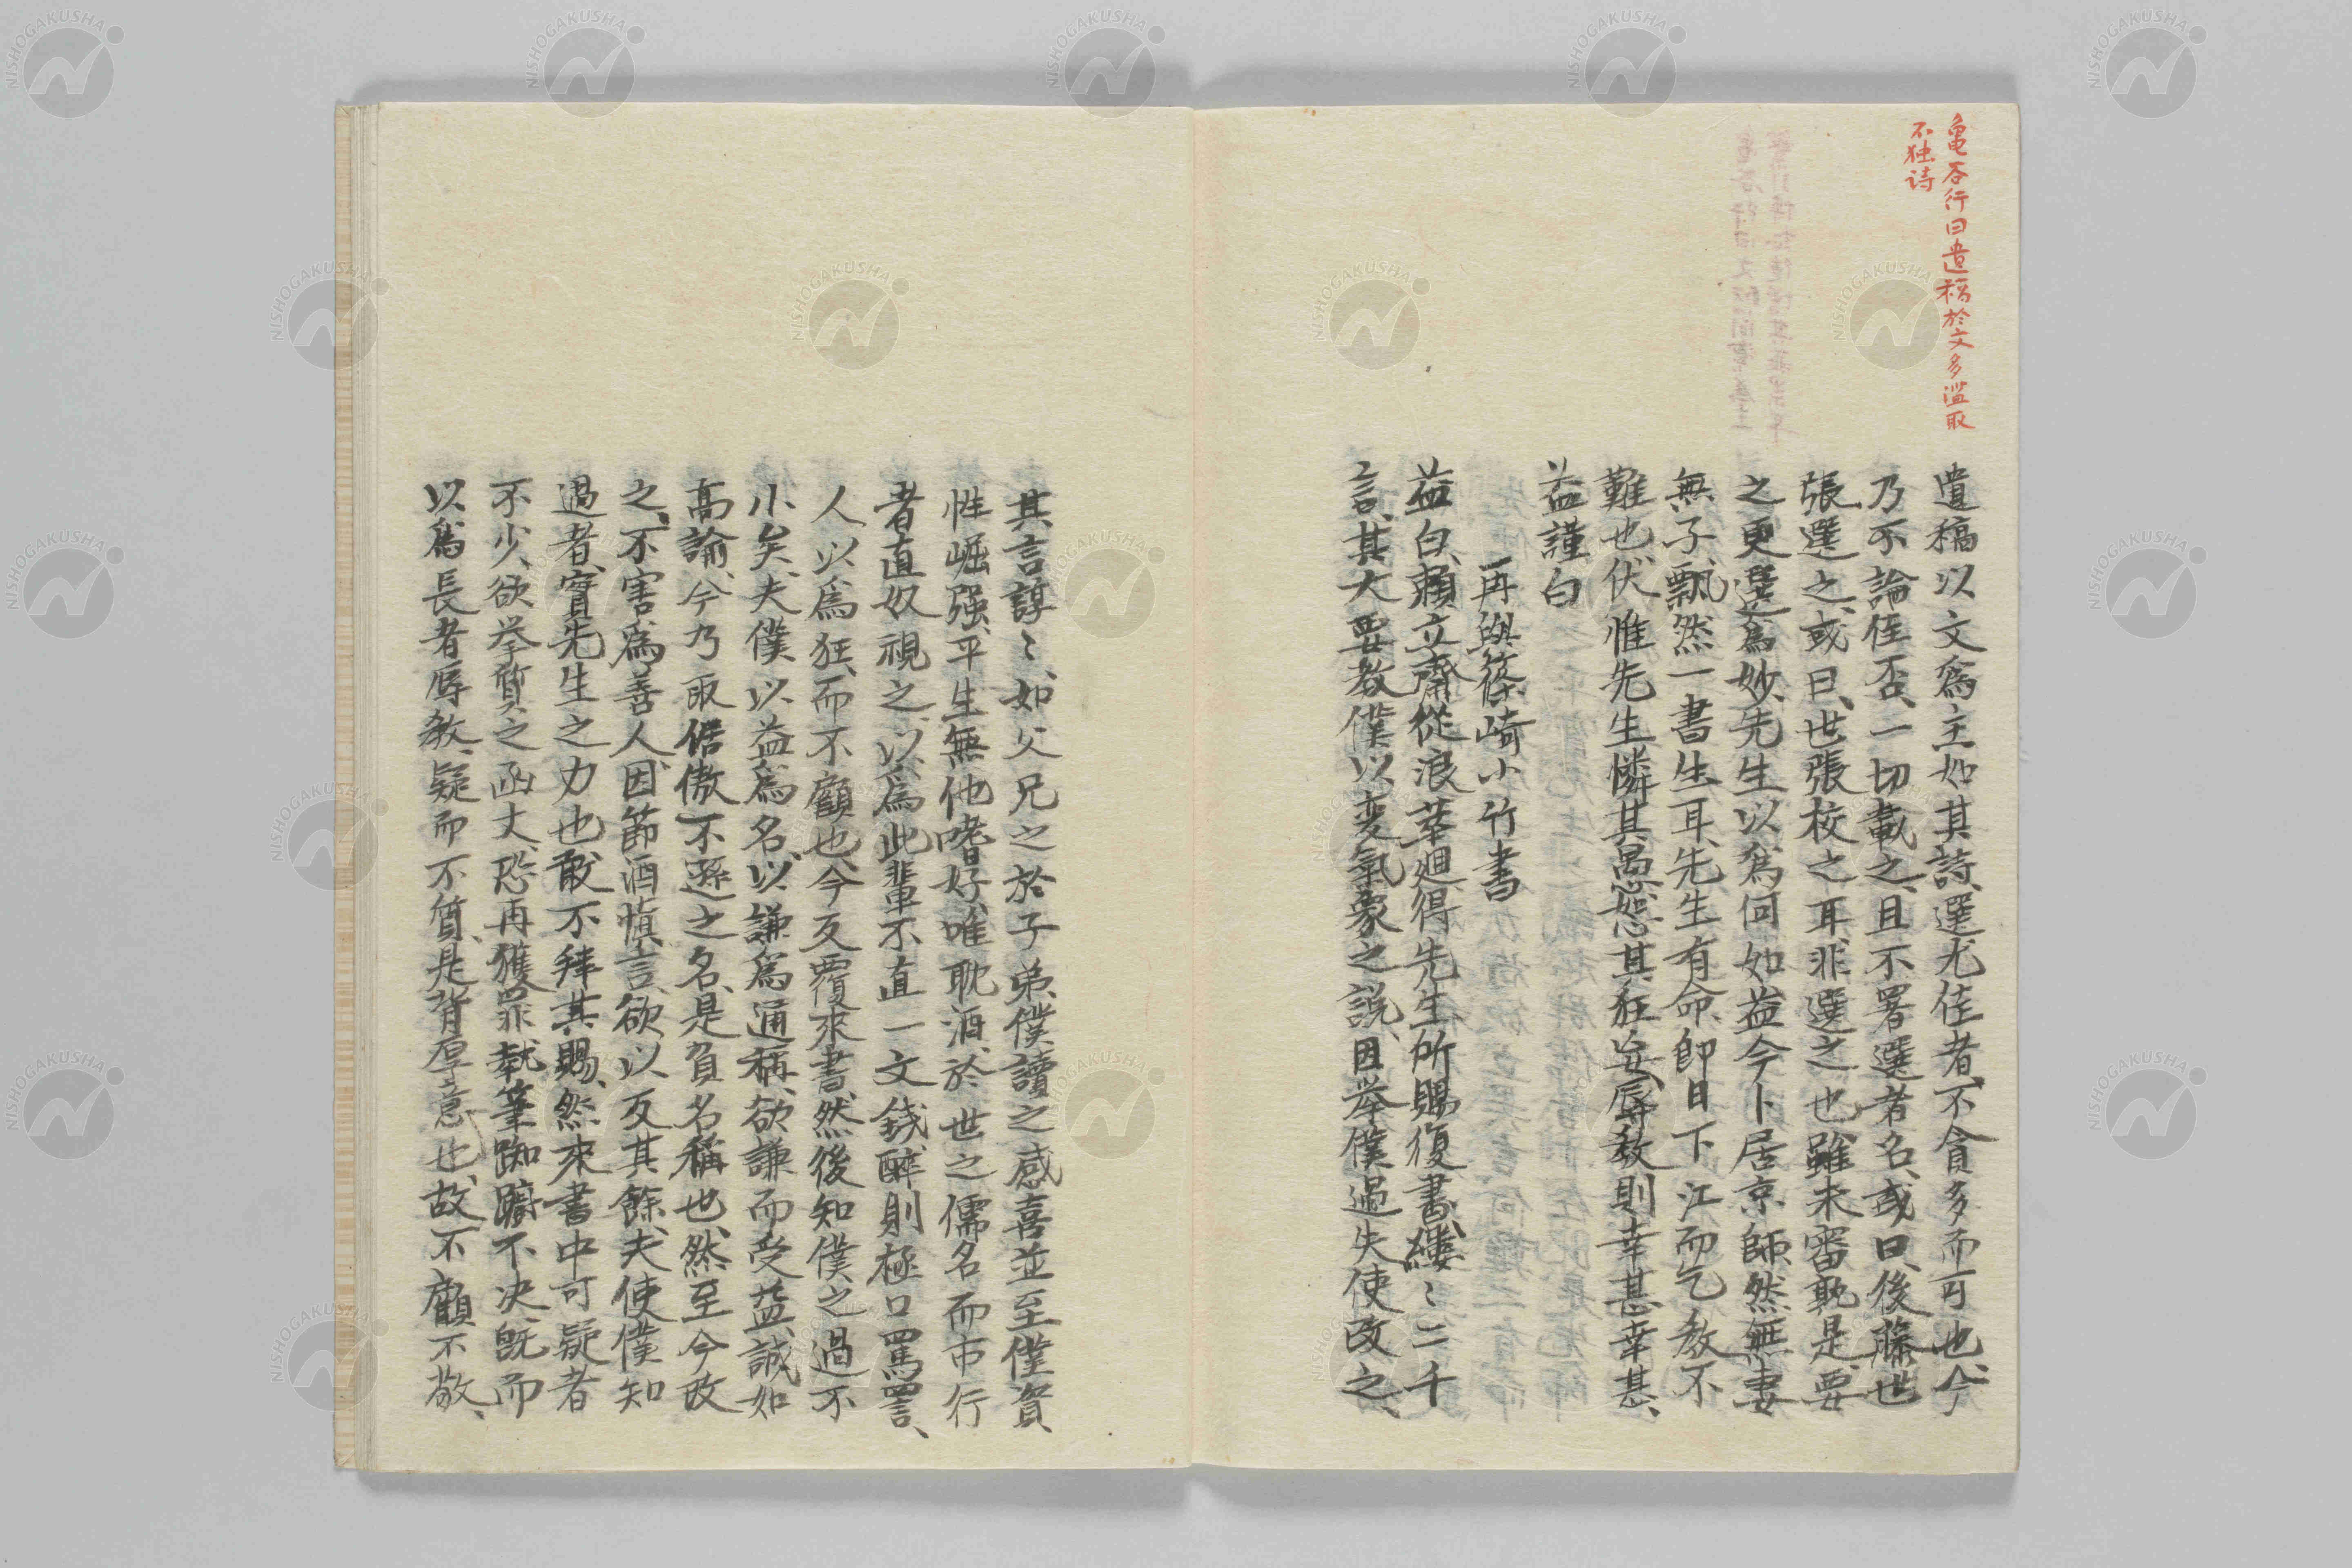 亀谷行曰遺稿於文多濫取
不独詩
遺稿以文爲主如其詩選尤佳者、不貪多而可也、今
乃不論佳否、一切載之、且不署選者名、或曰、後藤世
張選之、或曰、世張校之耳、非選之也、雖未審孰是、要
之更選爲妙、先生以爲何如、益今卜居京師、然無妻
無子、飄然一書生耳、先生有命、即日下江而乞教不
難也、伏惟先生憐其愚、恕其狂妄、辱教則幸甚幸甚、
益謹白
再與篠崎小竹書
益白、頼立齋從浪華廻、得先生所賜復書、縷〻二千
言、其大要教僕以変氣象之説、因挙僕過失使改之、
其言諄〻、如父兄之於子弟、僕讀之感喜並至、僕資
性崛强、平生無他嗜好、唯耽酒、於世之儒名而市行
者、直奴視之、以爲此輩不直一文銭、醉則極口罵詈、
人以爲狂、而不顧也、今反覆來書、然後知僕之過不
小矣、夫僕以益爲名、以謙爲通稱、欲謙而受益、誠如
高諭、今乃取倨傲不遜之名、是負名稱也、然至今改
之、不害爲善人、因節酒愼言、欲以反其餘、夫使僕知
過者、實先生之力也、敢不拜其賜、然來書中可疑者
不少、欲挙質之函丈、恐再獲罪、執筆踟躊不决、既而
以爲長者辱教、疑而不質、是背厚意也、故不顧不敬、